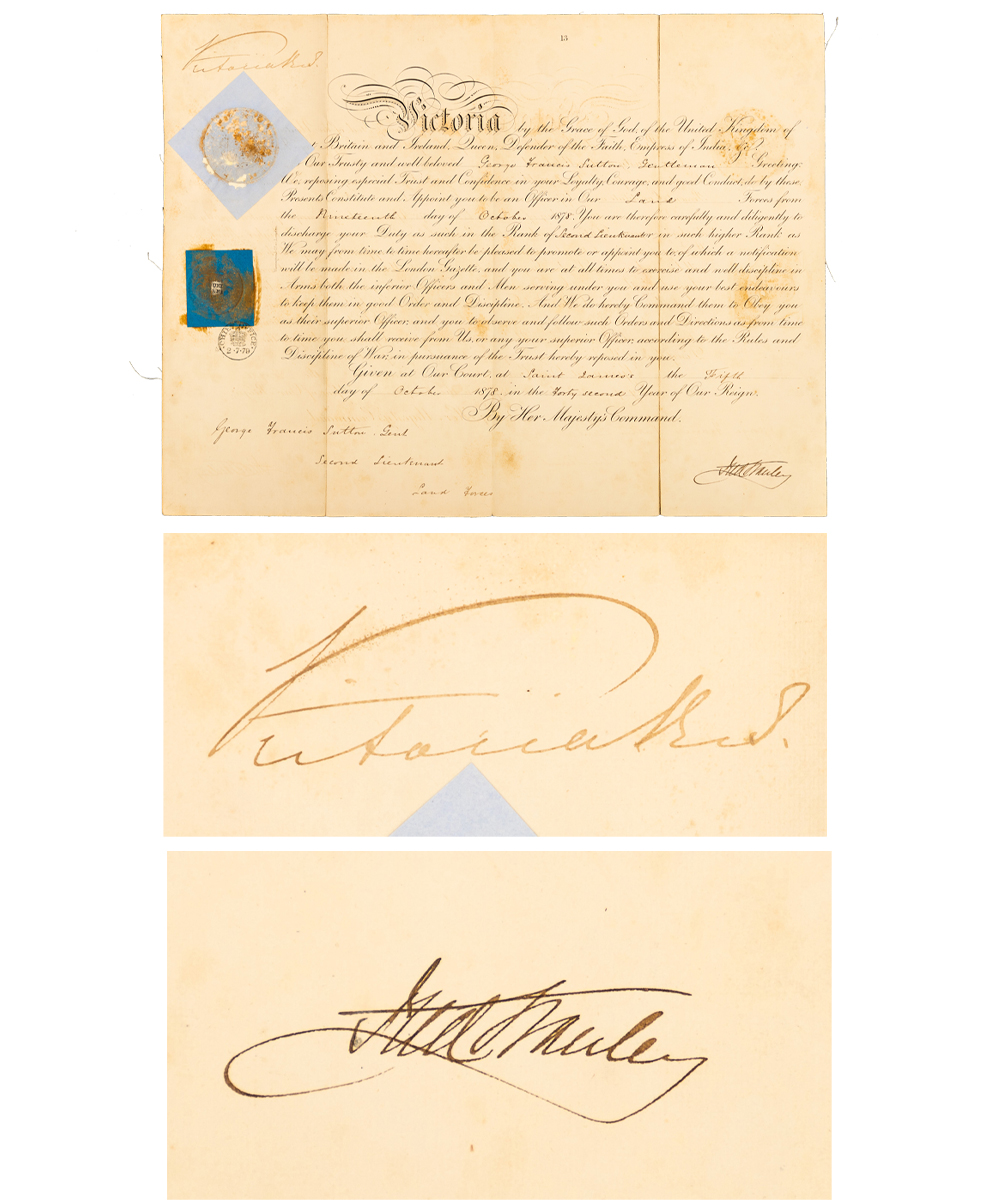 13
Victoria R I.
Victoria by the Grace of God, of the United Kingdom of
Britain and Ireland, Queen, Defender of the Faith, Empress of India, &c.
Our Trusty and well beloved George Francis Sutton, Gentleman Greeting:
We, reposing especial Trust and Confidence in your Loyalty, Courage, and good Conduct, do by these
Presents Constitute and Appoint you to be an Officer in Our Land Forces from
the Nineteenth day of October 1878. You are therefore carefully and diligently to
discharge your Duty as such in the Rank of Second Lieutenant or in such higher Rank as
We may from time to time hereafter be pleased to promote or appoint you to, of which a notification
will be made in the London Gazette, and you are at all times to exercise and well discipline in
Arms both the inferior Officers and Men serving under you and use your best endeavours
to keep them in good Order and Discipline. And We do hereby Command them to Obey you
as their superior Officer, and you to observe and follow such Orders and Directions as from time
to time you shall receive from Us, or any your superior Officer, according to the Rules and
Discipline of War, in pursuance of the Trust hereby reposed in you.
Given at Our Court, at Saint James's the Fifth
day of October 1878, in the Forty second Year of Our Reign.
By Her Majesty's Command.
George Francis Sutton, Gent
Second Lieutenant
Land Forces
Fred Stanley
Victoria R I.
Fred Stanley